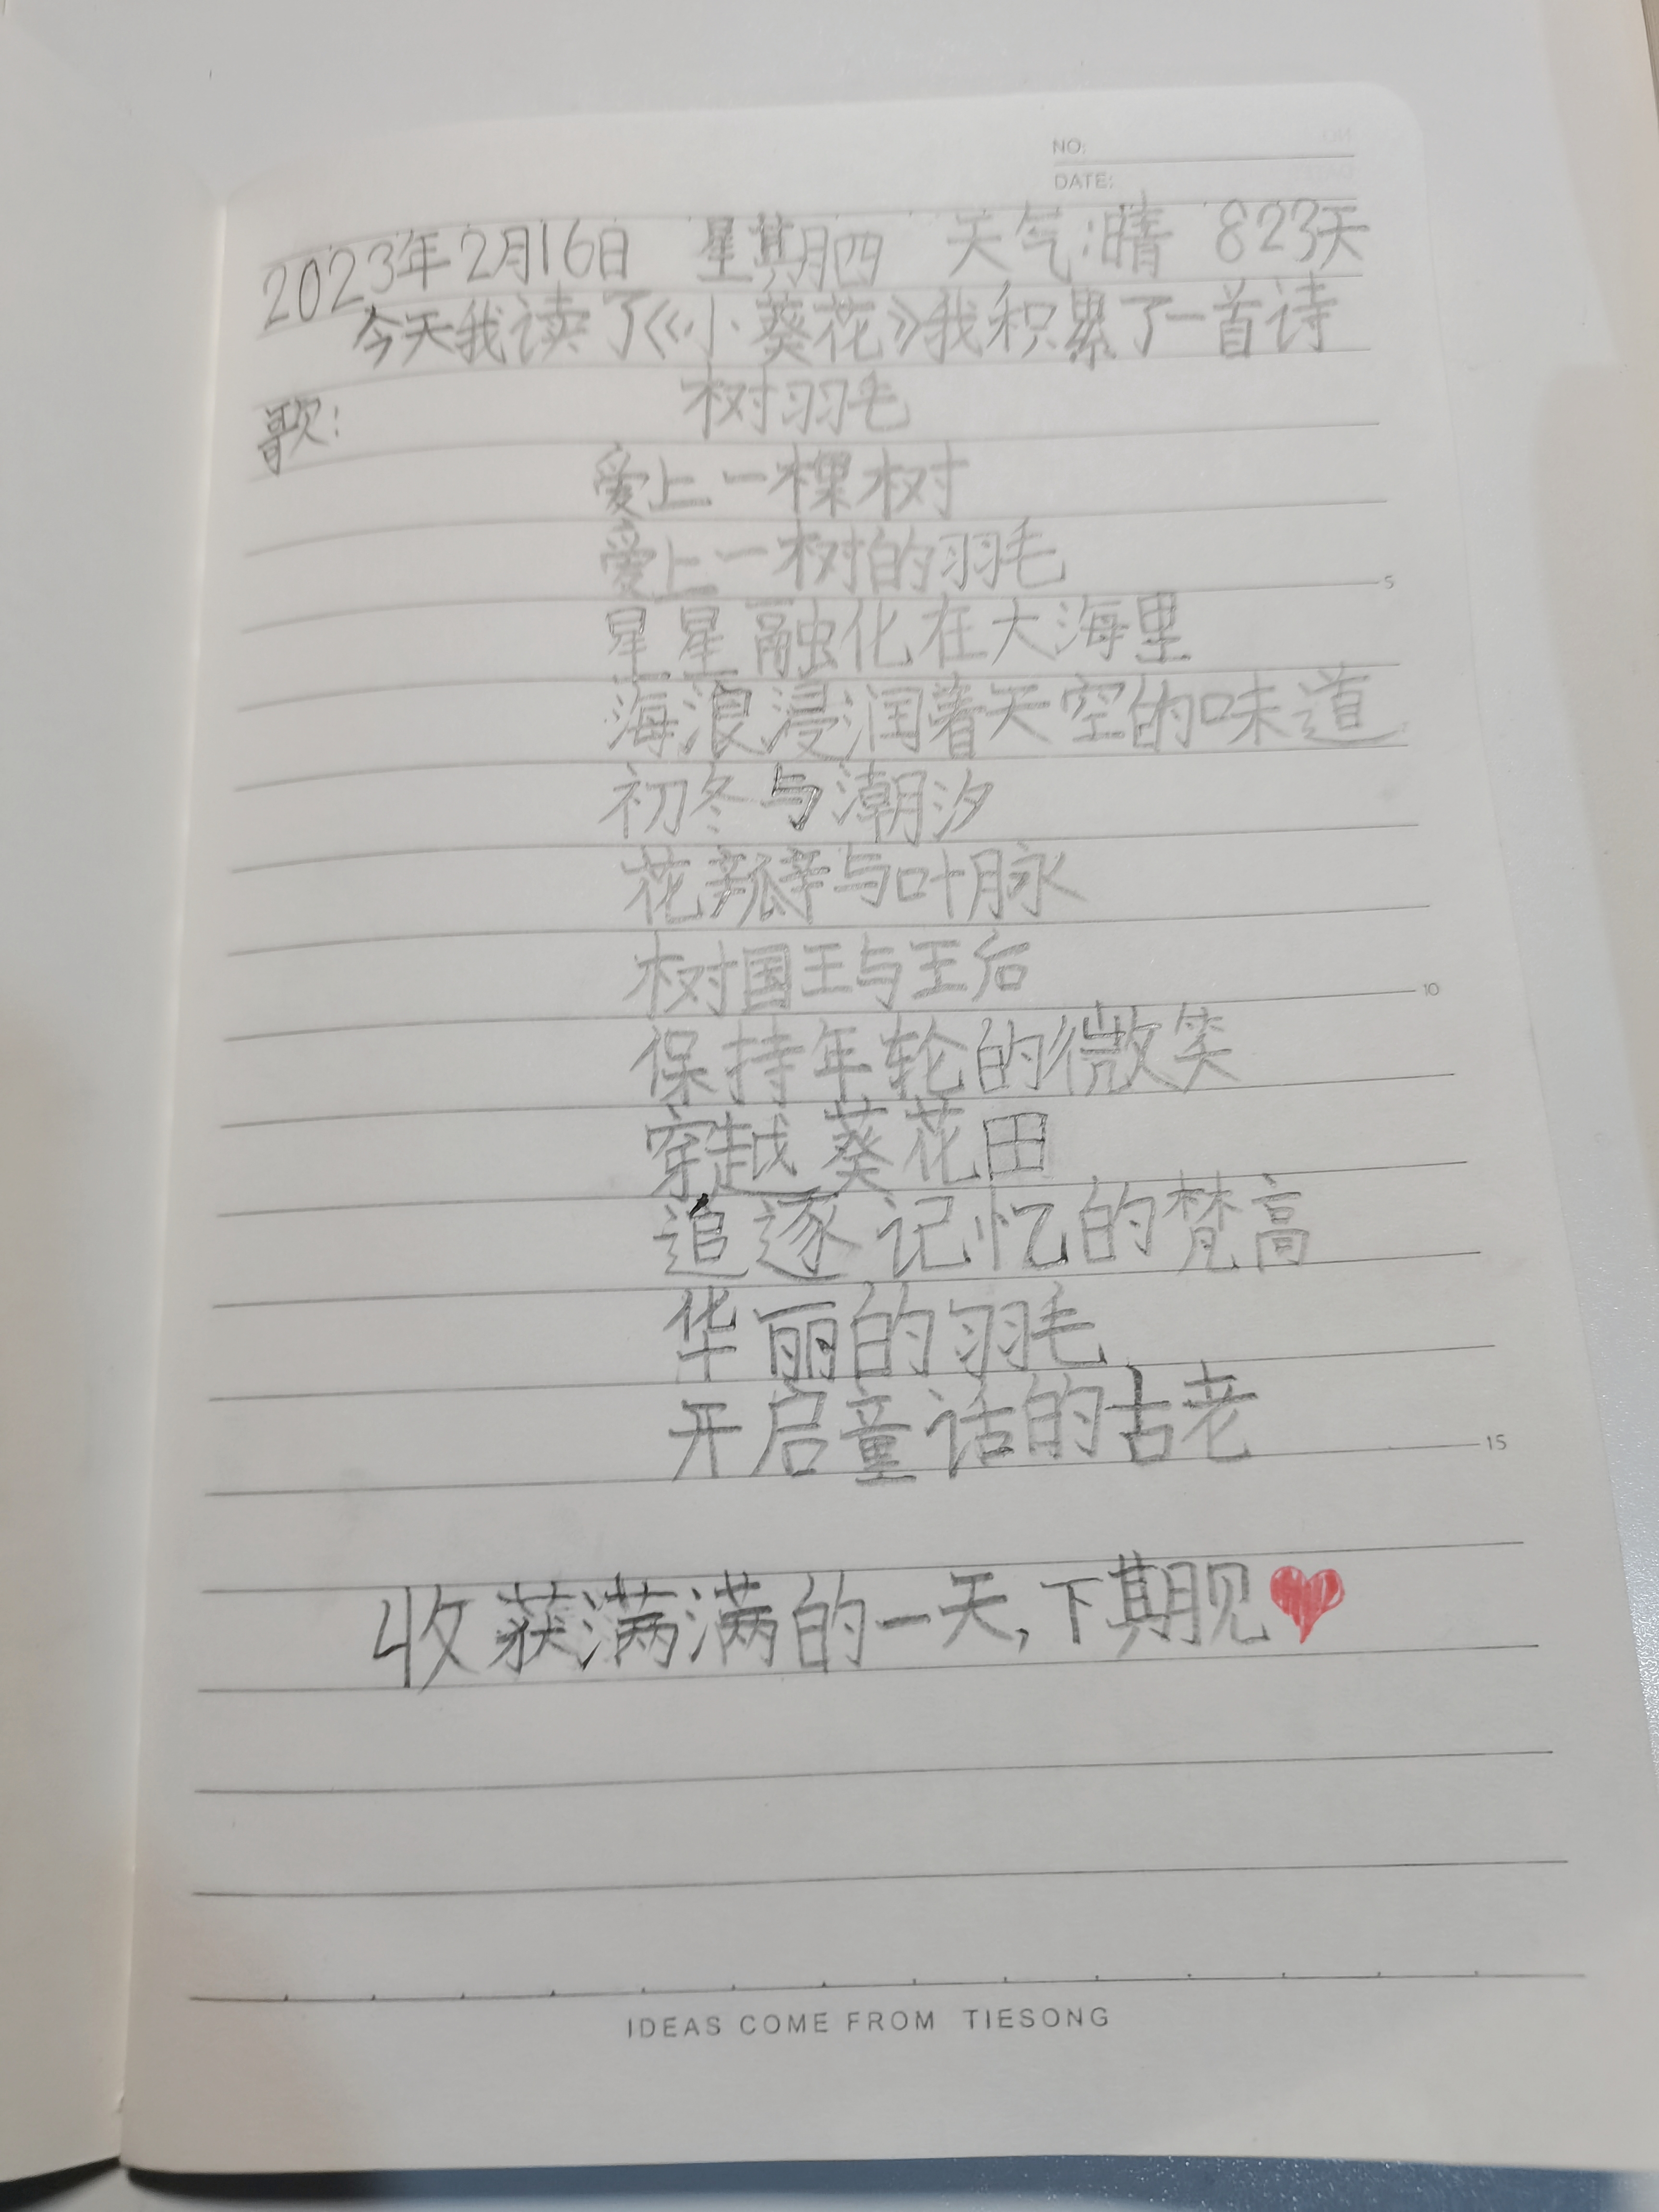 NO:
DATE:
2023年2月16日 星期四 天气:晴 823天
今天我读了《小葵花》我积累了一首诗
歌:
树羽毛
爱上一棵树
爱上一树的羽毛
星星融化在大海里
海浪浸润着天空的味道
初冬与潮汐
花瓣与叶脉
树国王与王后
保持年轮的微笑
穿越葵花田
追逐记忆的梵高
华丽的羽毛
开启童话的古老
收获满满的一天,下期见
5
10
15
IDEAS COME FROM TIESONG